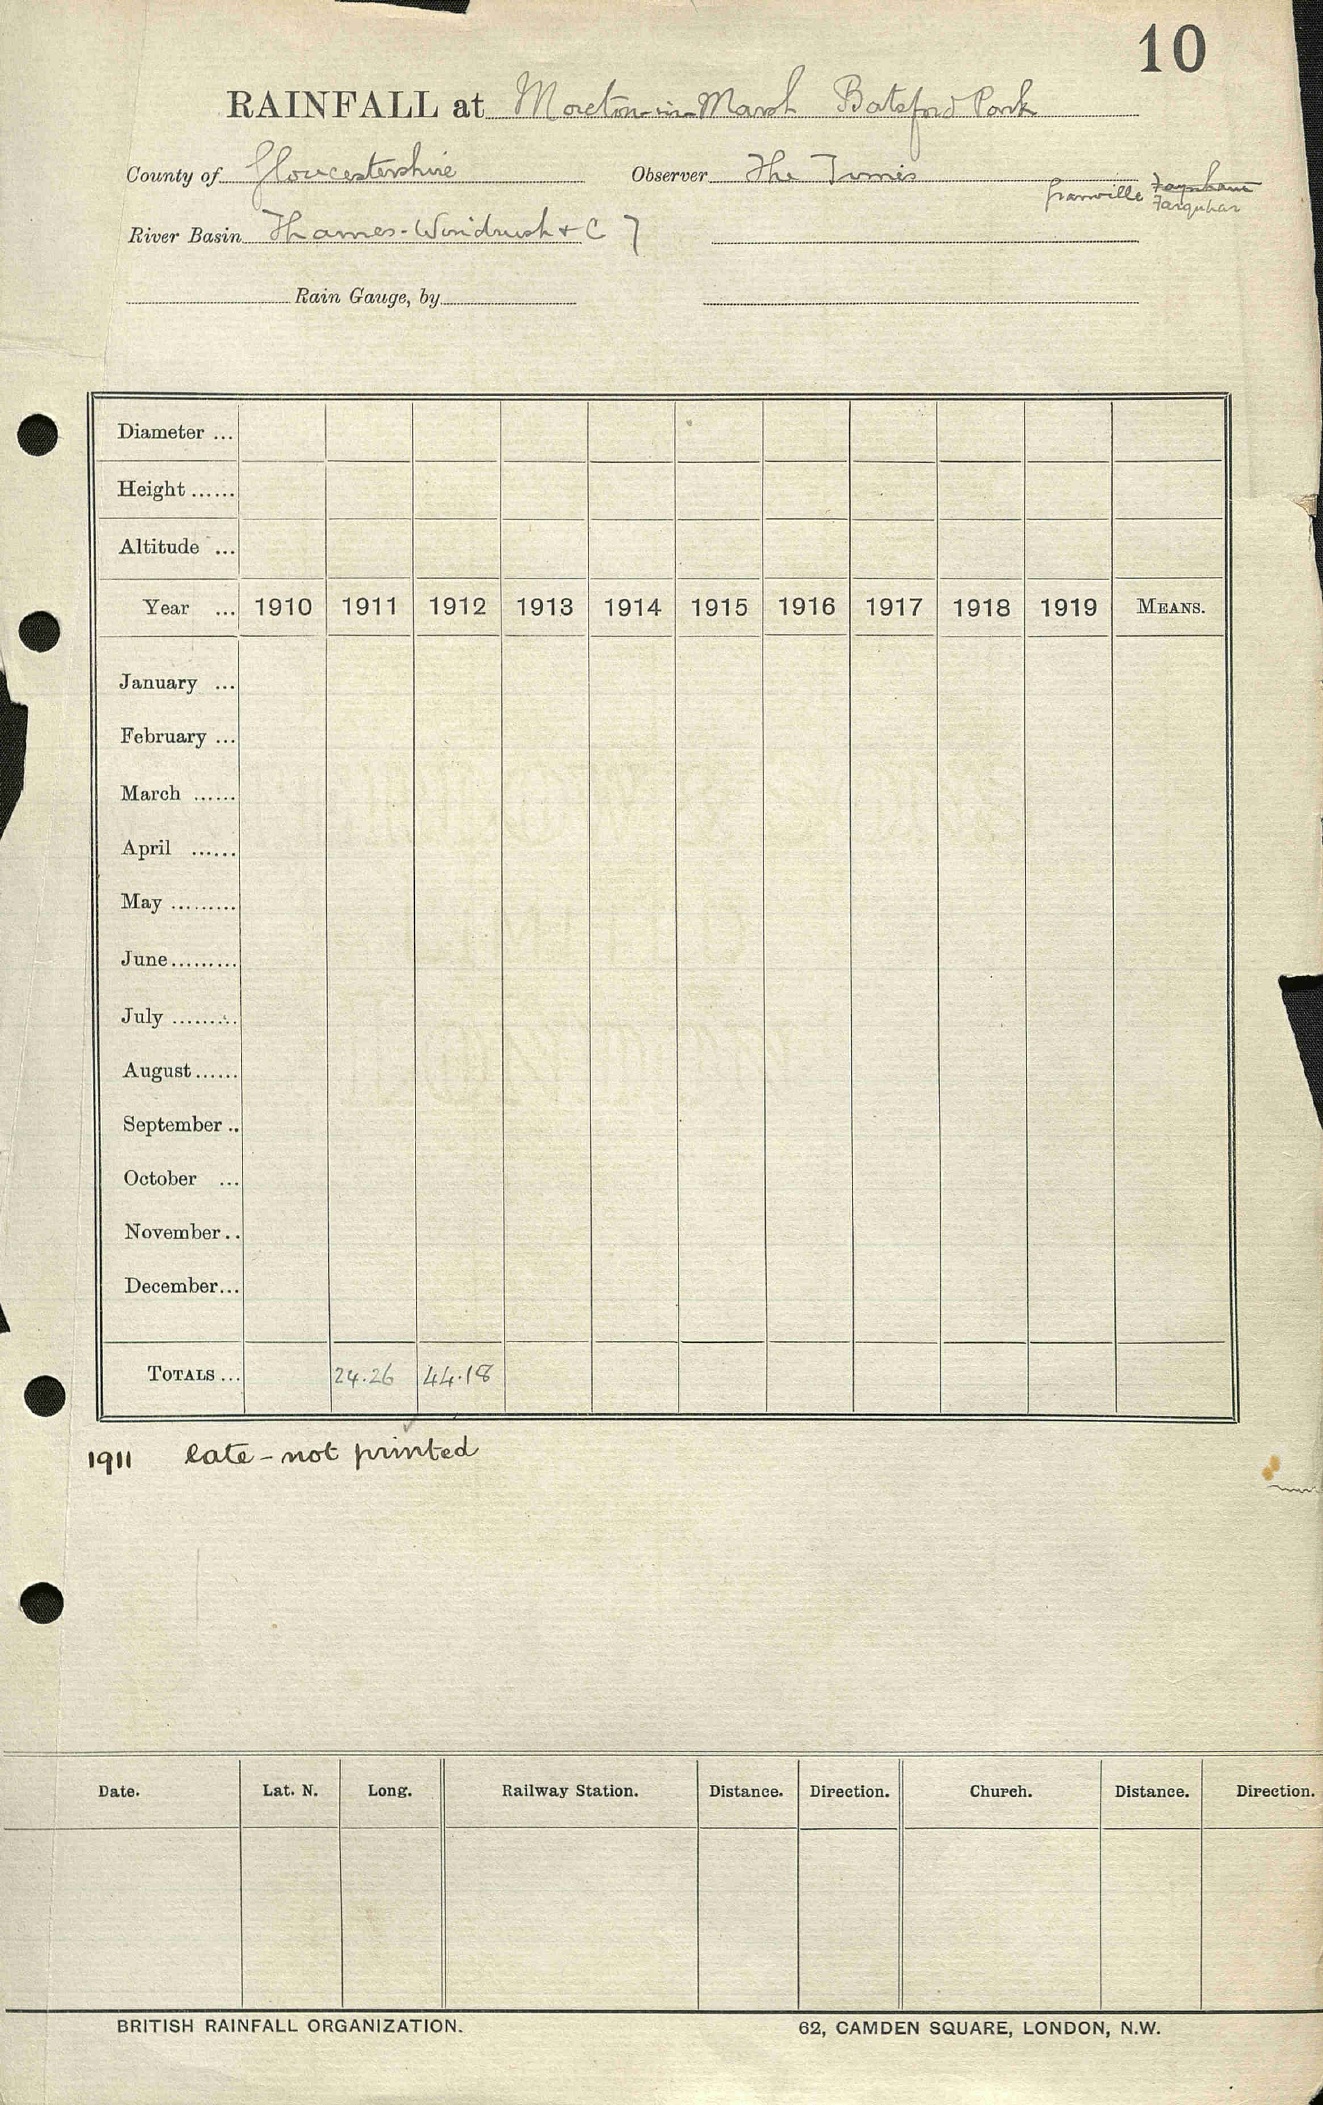 10
RAINFALL at Moreton-in-Marsh Batsford Park
County of Gloucestershire Observer The Times
Granville Farquhar
River Basin Thames-Windrush & C 7
Rain Gauge, by
Diameter ...
Height ......
Altitude ...
Year ... 1910 1911 1912 1913 1914 1915 1916 1917 1918 1919 MEANS.
January ...
February ...
March ......
April ......
May .........
June.........
July .........
August......
September ..
October ...
November..
December...
TOTALS ... 24.26 44.18
1911 late - not printed
Date. Lat. N. Long. Railway Station. Distance. Direction. Church. Distance. Direction.
BRITISH RAINFALL ORGANIZATION. 62, CAMDEN SQUARE, LONDON, N.W.